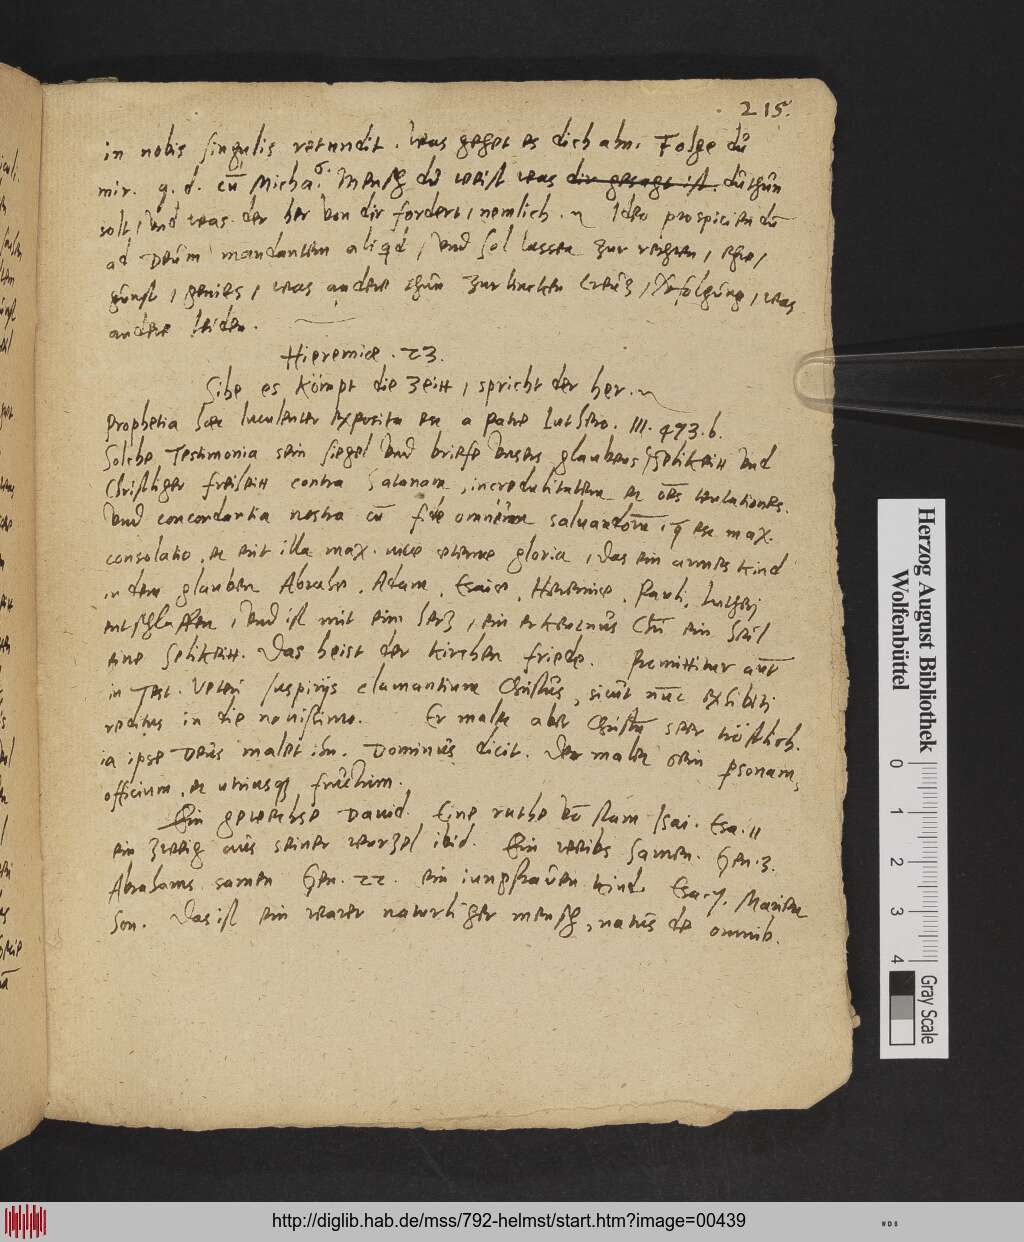 215.
in nobis singulis retundit. Was gehet es dich ahn. Folge dů
mir. q. d. cū Micha. 6. Mensch dů weist was dir gesagt ist. dů thůn
solt, vnd was der her von dir fordert, nemlich. Ideo prospiciendū
ad Deům mandantem aliqd, vnd sol lassen zur rechten, ehre,
gůnst, genies, was andere thůn zur lincken creůz, verfolgůng, was
andere leiden.
Hieremiae. 23.
Sihe es kömpt die zeitt, spricht der her.
Prophetia haec luculenter exposita est a patre Luthero. III. 493. b.
Solche Testimonia sein siegel vnd briefe vnsers glaubens, selikeitt vnd
Christliger freiheitt contra Satanam, incredulitatem et oēs tentationes.
vnd concordantia nostra cū fide omnium saluandorum, q est max.
consolatio, et erit illa max. vitae aeternae gloria, das ein armes kind
in dem glauben Abrahe, Adam, Esaiae, Hieremiae, Pauli, Lutheri
entschlaffen, vnd ist mit eim herz, ein erkentnůs Chri ein heil
eine selikeitt. Das heist der kirchen friede. Promittitur aūt
in Test. Veteri suspirijs clamantium Christůs, sicůt nūc exhibiti
reditus in die nouissimo. Er malet aber Christū seer tröstlich.
ia ipse Deůs malet ihn. Dominůs dicit. Der malet sein psonam,
officium, et utriusq, frůctum.
Ein gewechse Dauid. Eine ruthe vō stam Isai. Esa. 11
ein zweig aůs seiner wurzel ibid. Ein weibs samen. Gen. 3.
Abrahams samen Gen. 22. ein iungfraůen kind. Esa. 7. Marien
son. Das ist ein warer naturliger mensch, natůs de
Herzog August Bibliothek
Wolfenbüttel
0 1 2 3 4
Gray Scale
http://diglib.hab.de/mss/792-helmst/start.htm?image=00439